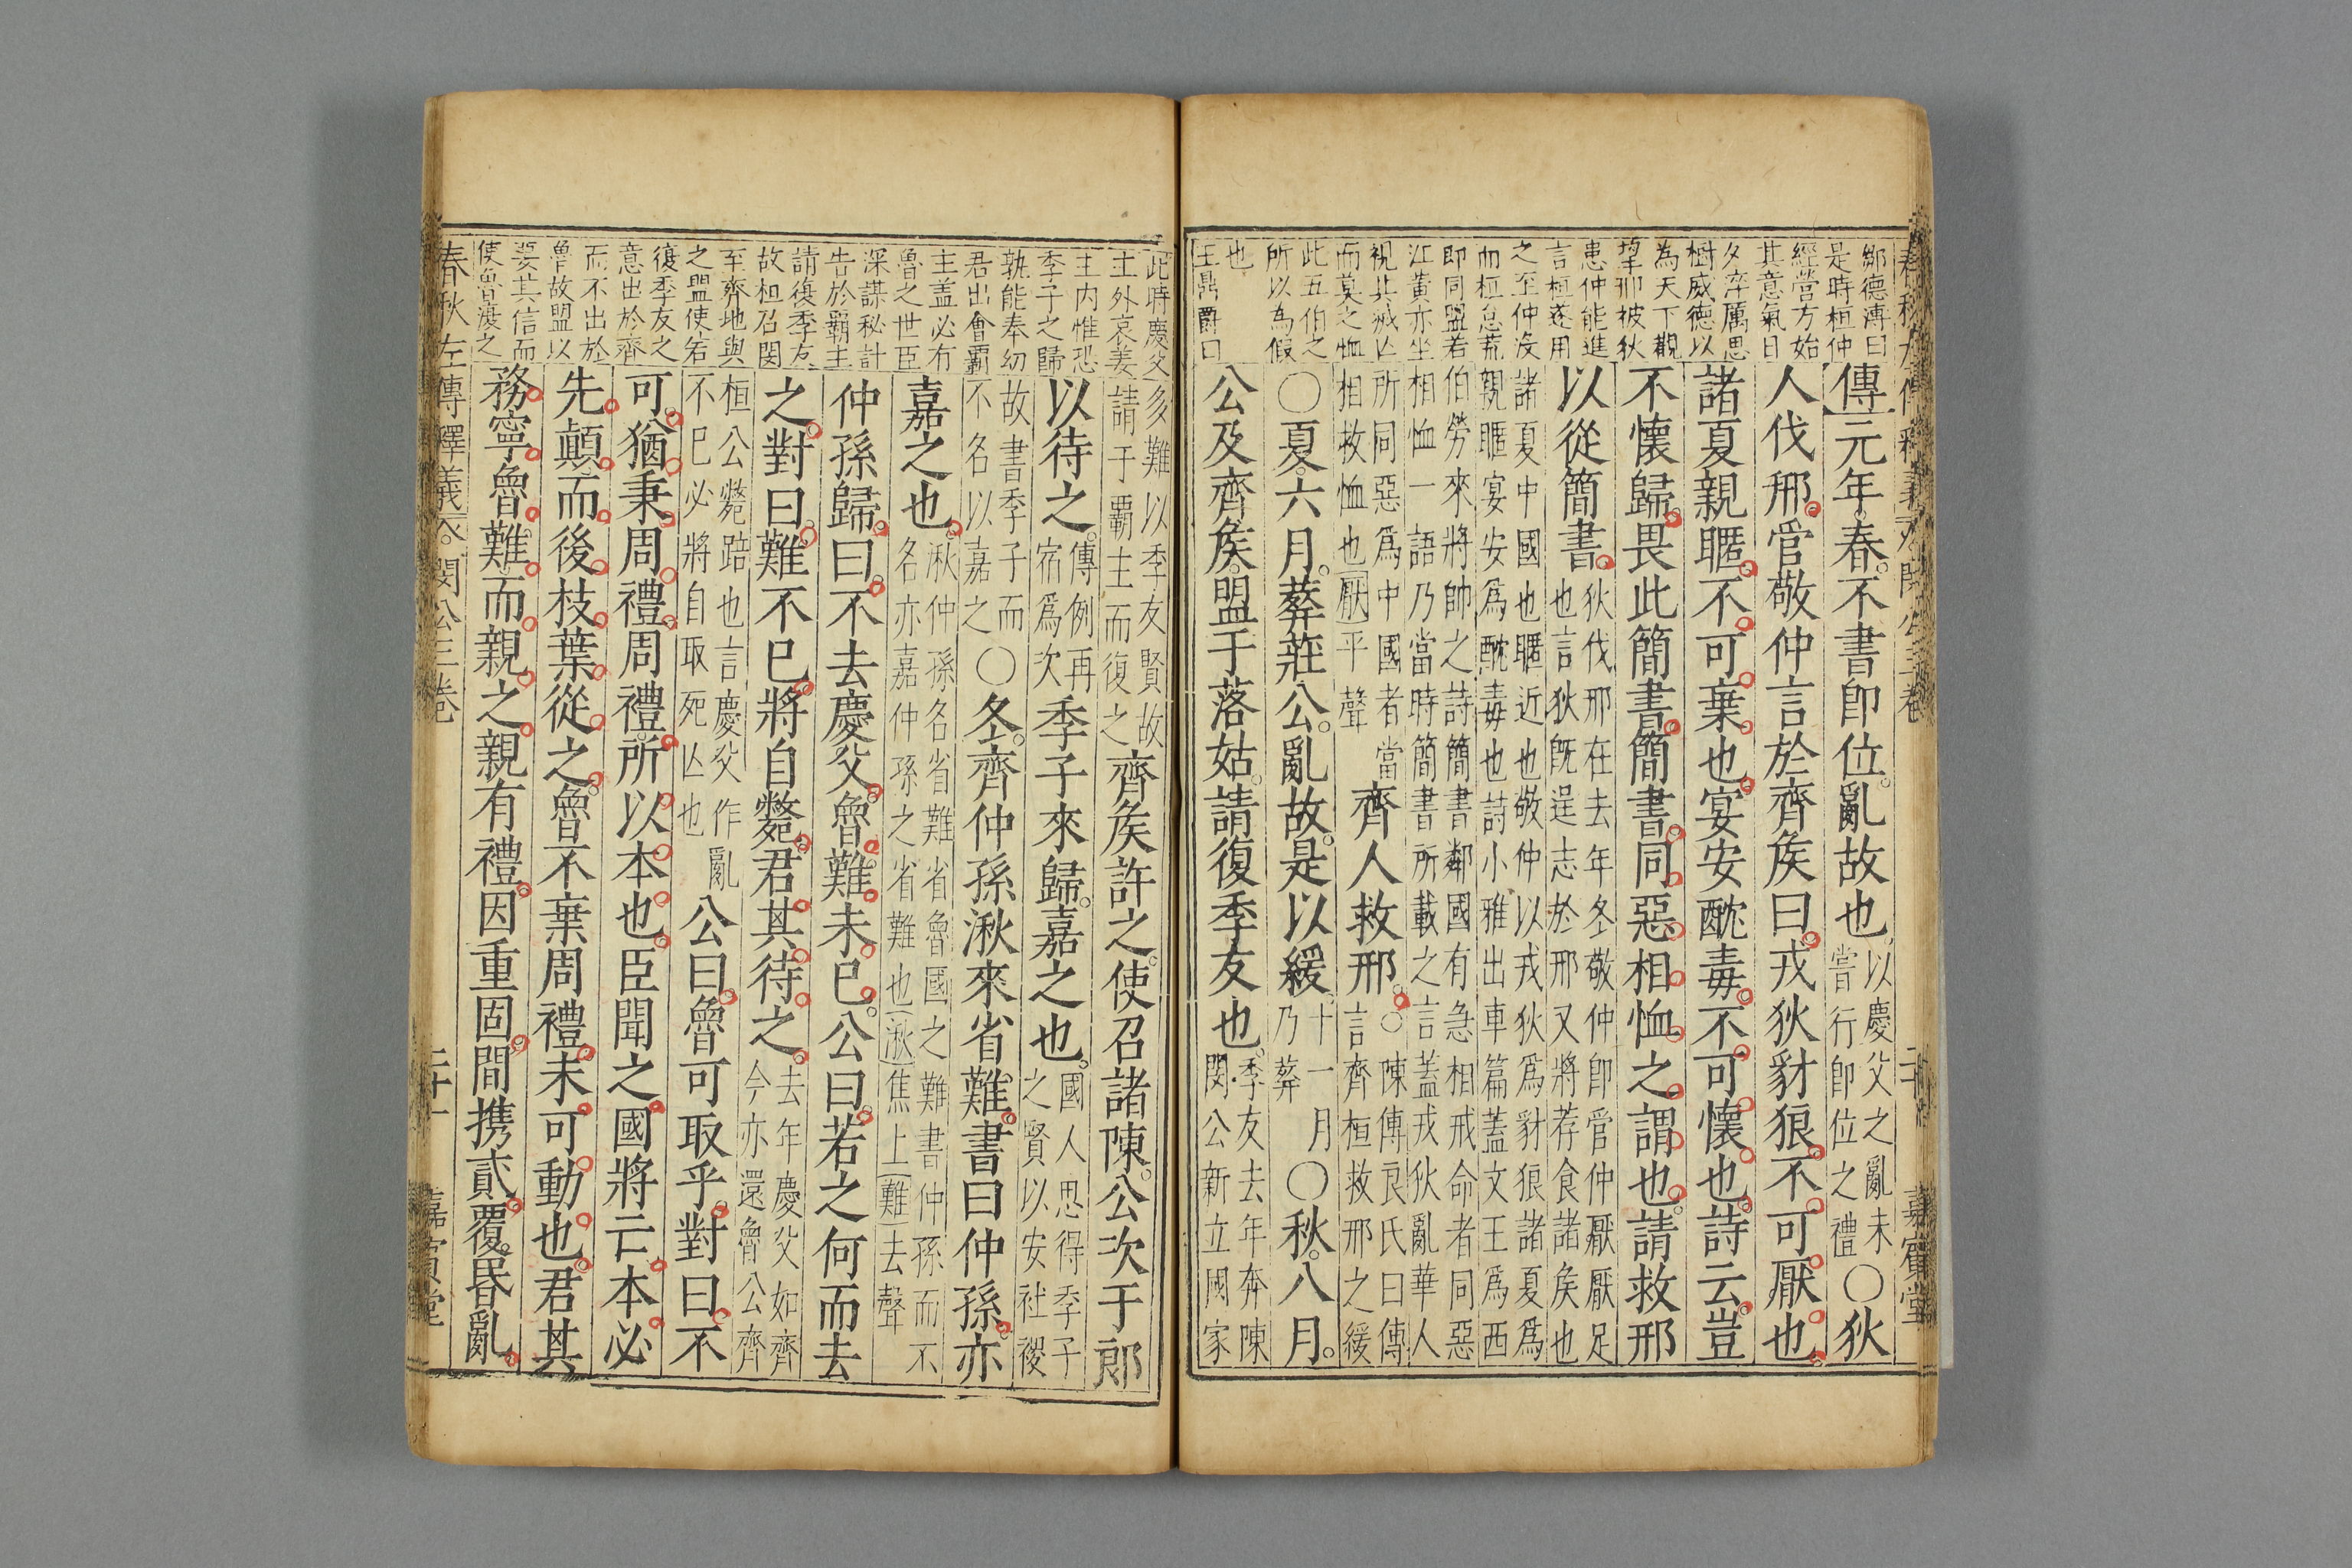 春秋左傳釋義 閔公三卷 二十 嘉賓堂
鄒德溥曰
是時桓仲
經營方始
其意氣日
夕淬厲思
樹威德以
為天下觀
望邢被狄
患仲能進
言桓遂用
之至仲沒
而桓怠荒
即同盟若
江黃亦坐
視其滅亡
而莫之恤
此五伯之
所以為假
也
王鼎爵曰
傳元年。春。不書卽位。亂故也。以慶父之亂未嘗行卽位之禮〇狄
人伐邢。管敬仲言於齊侯曰。戎狄豺狼。不可厭也。
諸夏親暱。不可棄也。宴安酖毒。不可懷也。詩云。豈
不懷歸。畏此簡書。簡書。同惡相恤之謂也。請救邢
以從簡書。狄伐邢在去年冬敬仲卽管仲厭厭足也言狄旣逞志於邢又將荐食諸侯也
諸夏中國也暱近也敬仲以戎狄爲豺狼諸夏爲親暱宴安爲酖毒也詩小雅出車篇蓋文王爲西
伯勞來將帥之詩簡書鄰國有急相戒命者同惡相恤一語乃當時簡書所載之言蓋戎狄亂華人
所同惡爲中國者當相救恤也厭平聲齊人救邢。〇陳傅良氏曰傳言齊桓救邢之緩
〇夏。六月。葬莊公。亂故。是以緩。十一月乃葬〇秋。八月。
公及齊侯。盟于落姑。請復季友也。季友去年奔陳閔公新立國家
此時慶父
主外哀姜
主内惟恐
季子之歸
孰能奉幼
君出會霸
主盖必有
魯之世臣
深謀秘計
告於霸主
請復季友
故桓召閔
至齊地與
之盟使若
復季友之
意出於齊
而不出於
魯故盟以
要其信而
使魯漫之
多難以季友賢故請于霸主而復之齊侯許之。使召諸陳。公次于郎
以待之。傳例再宿爲次季子來歸。嘉之也。國人思得季子之賢以安社稷
故書季子而不名以嘉之〇冬。齊仲孫湫來省難。書曰仲孫。亦
嘉之也。湫仲孫名省難省魯國之難書仲孫而不名亦嘉仲孫之省難也湫焦上難去聲
仲孫歸。曰。不去慶父。魯難未已。公曰。若之何而去
之。對曰。難不已。將自斃。君其待之。去年慶父如齊今亦還魯公齊
桓公斃踣也言慶父作亂不已必將自取死亡也公曰。魯可取乎。對曰。不
可。猶秉周禮。周禮。所以本也。臣聞之。國將亡。本必
先顛。而後枝葉從之。魯不棄周禮。未可動也。君其
務寧魯難。而親之。親有禮。因重固。間携貳。覆昏亂。
春秋左傳釋義 閔公三卷 二十一 嘉賓堂